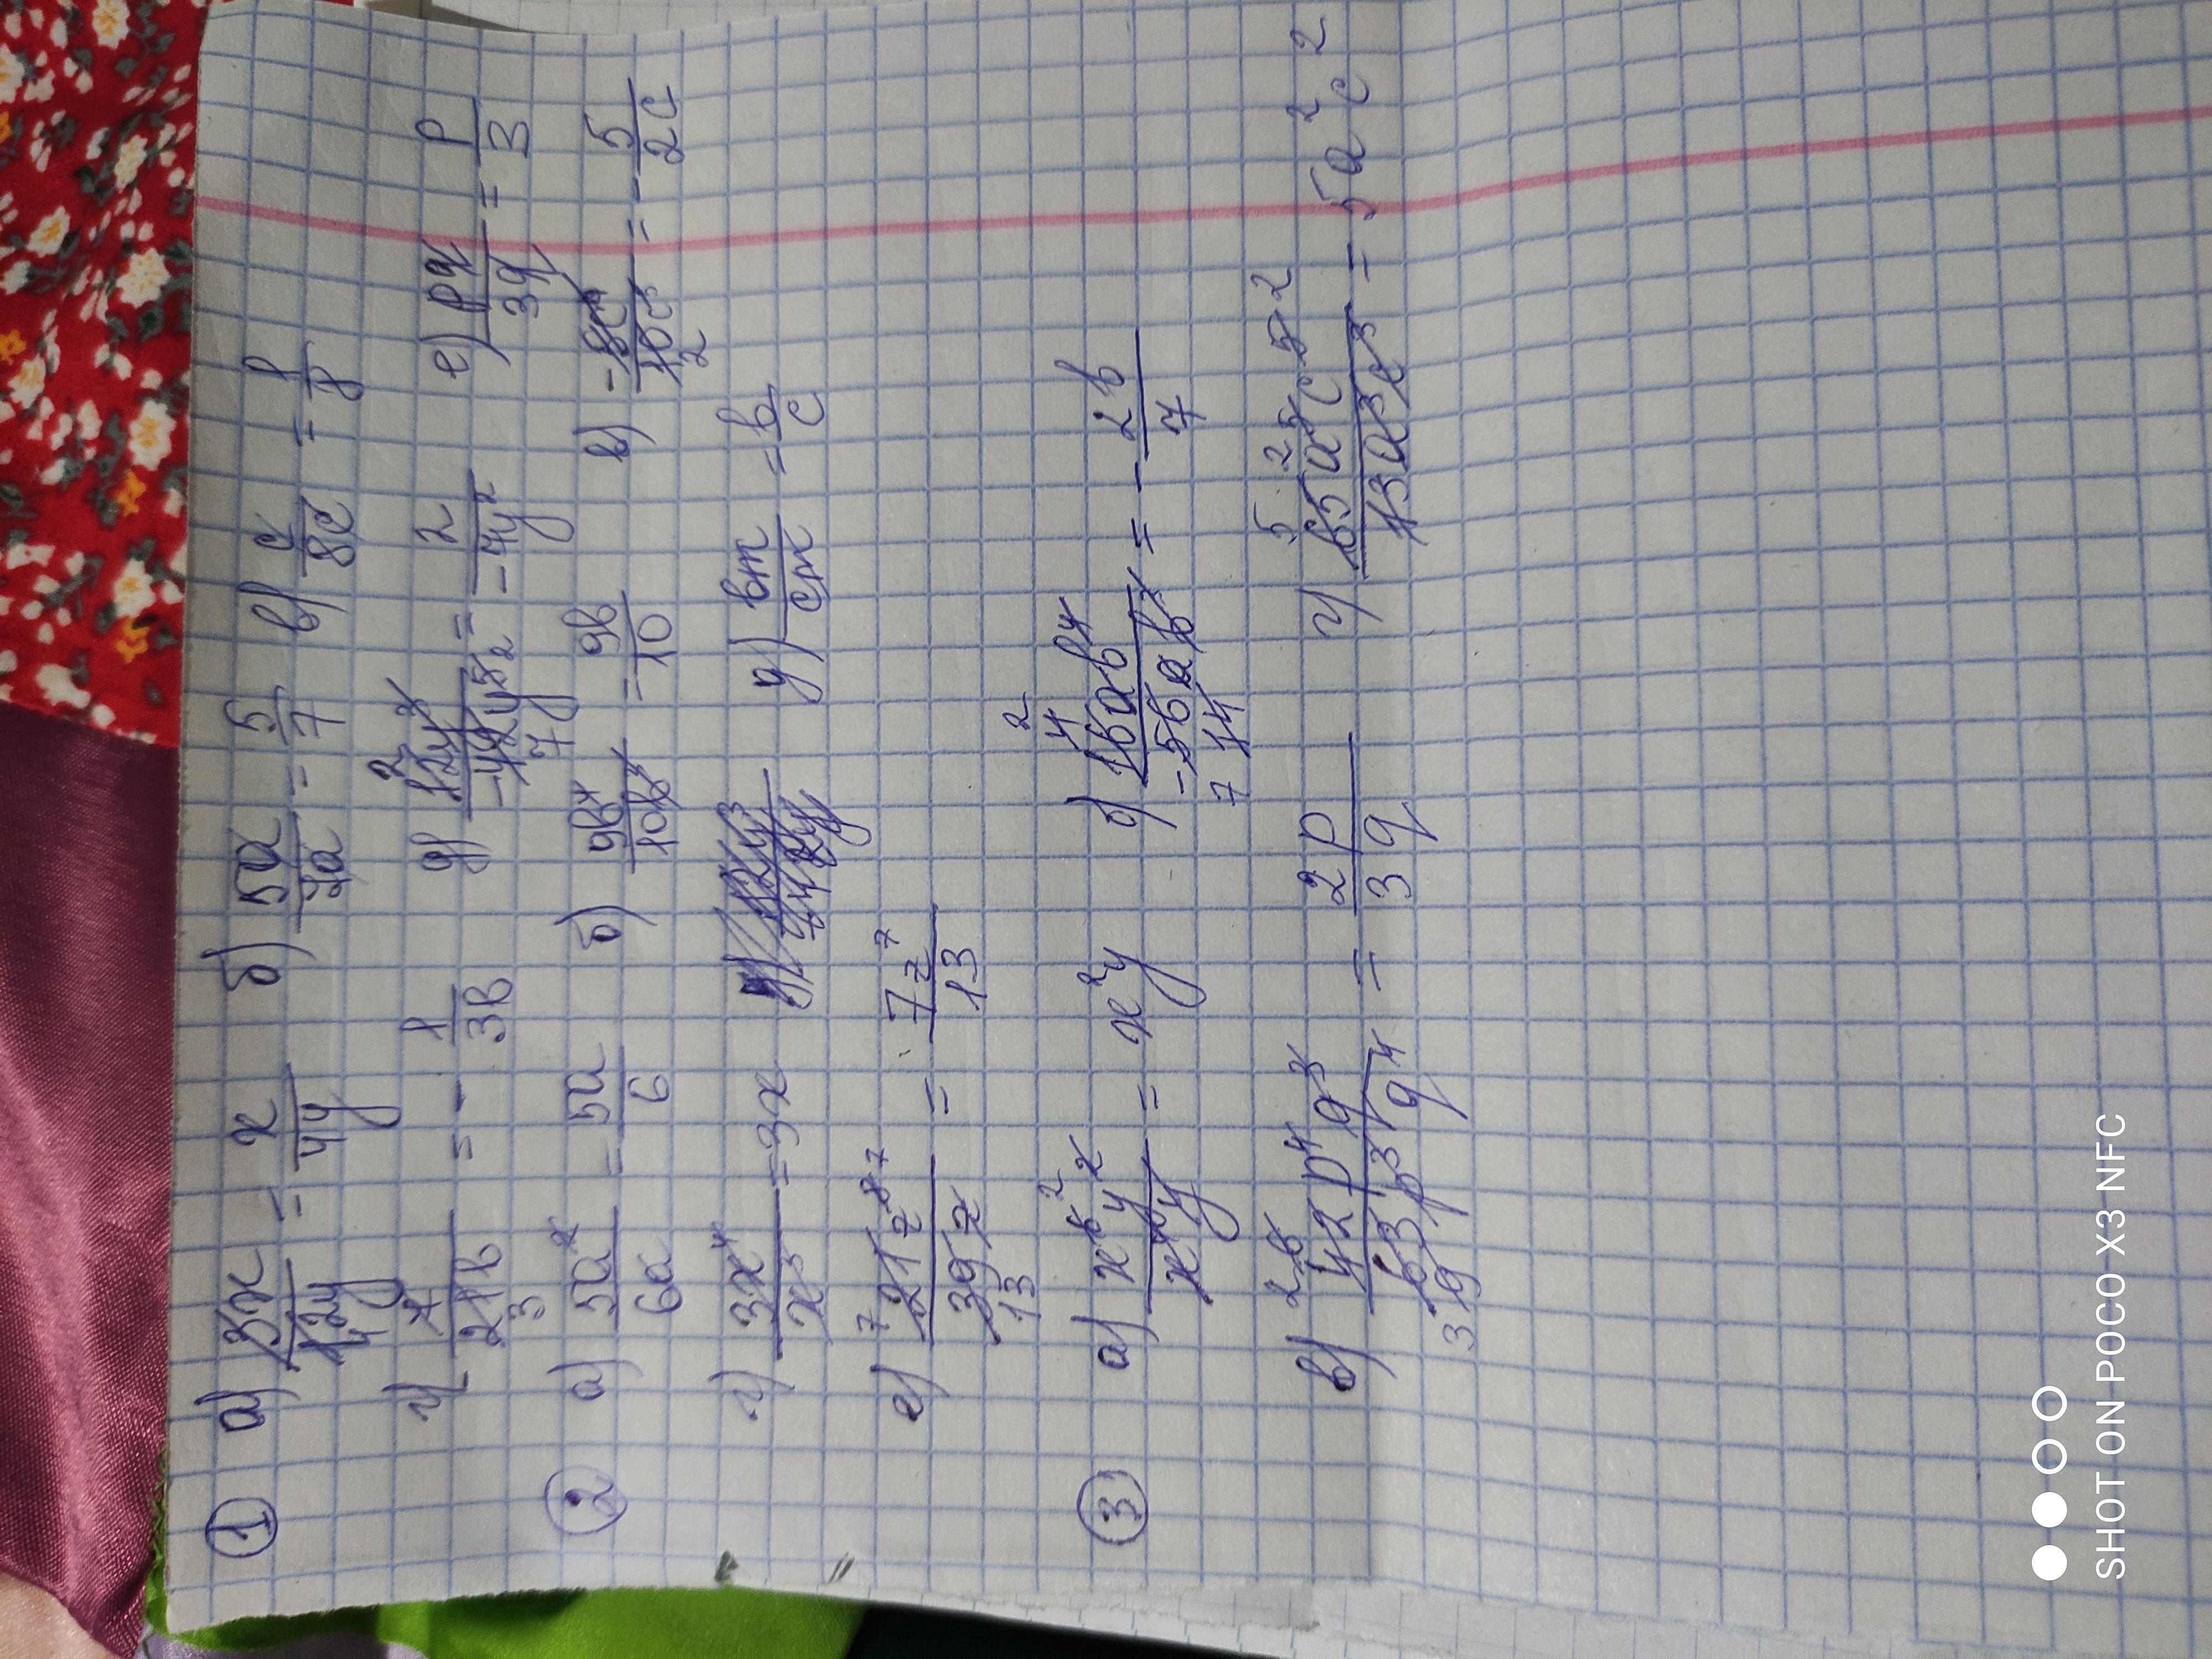 ① а) 3x/12y = x/4y б) 5a/7a = 5/7 в) c/8c = 1/8
г) -7/21в = -1/3в д) 12y³/-42y⁵ = 2/-7y² е) pq/3q = p/3
② а) 5a²/6a = 5a/6 б) 9в⁴/10в³ = 9в/10 в)
г) 3x⁴/x³ = 3x д) вm/cm = в/c
е) 21z⁸/39z = 7z⁷/13
③ а) x⁶y²/x⁴y = x²y б) 16aв⁸/-56aв⁷ = -2в/7
в) 42p⁴q³/63p³q⁴ = 2p/3q г) 65a⁵c⁵/13a³c³ = 5a²c²
SHOT ON POCO X3 NFC